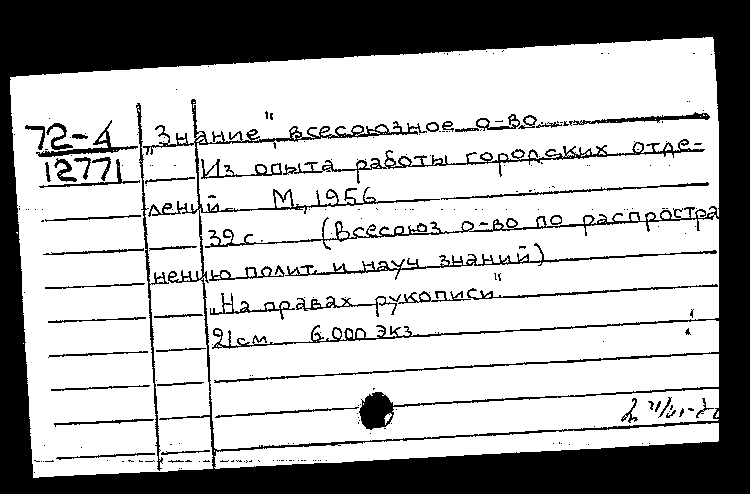 72-4
12771
„Знание", всесоюзное о-во
Из опыта работы городских отде-
лений. М., 1956
39 с. (Всесоюз о-во по распростра
нению полит. и науч знаний)
„На правах рукописи"
21 см. 6.000 экз.